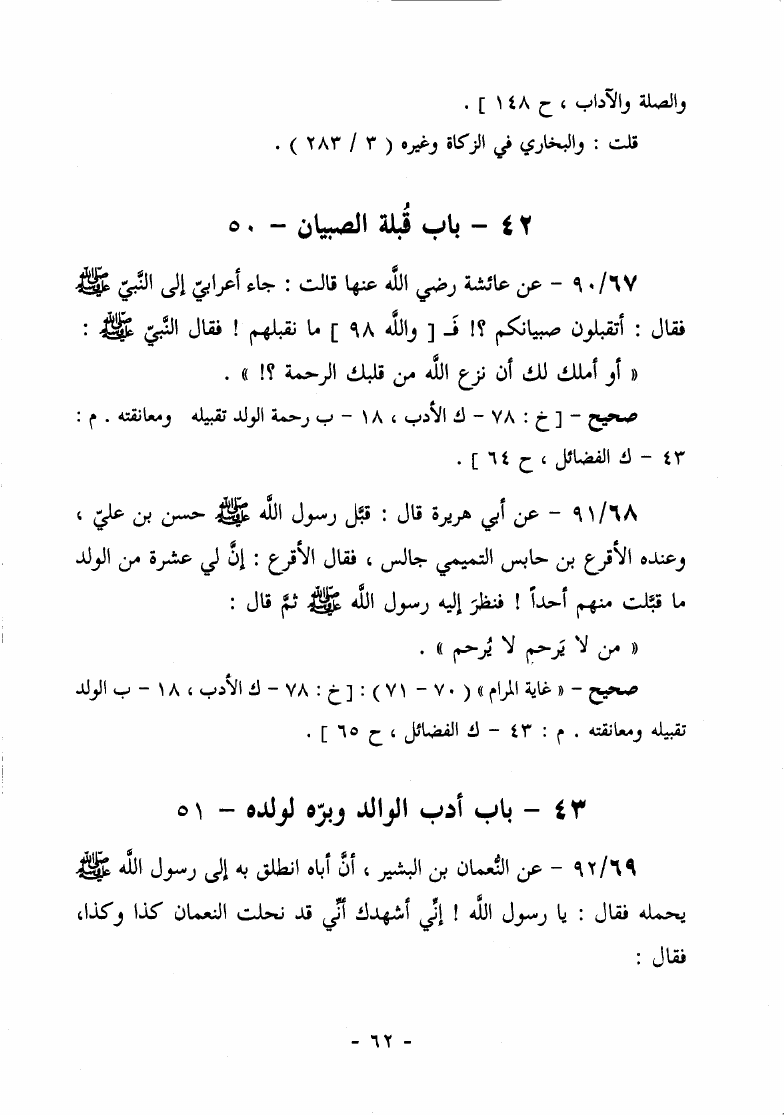 والصلة والآداب ، ح ١٤٨ ] .
قلت : والبخاري في الزكاة وغيره ( ٣ / ٢٨٣ ) .
٤٢ – باب قُبلة الصبيان – ٥٠
٩٠/٦٧ – عن عائشة رضي الله عنها قالت : جاء أعرابيّ إلى النَّبيّ ﷺ
فقال : أتقبلون صبيانكم ؟! فَـ [ والله ٩٨ ] ما نقبلهم ! فقال النَّبيّ ﷺ :
« أو أملك لك أن نزع الله من قلبك الرحمة ؟! » .
صحيح – [ خ : ٧٨ – ك الأدب ، ١٨ – ب رحمة الولد تقبيله ومعانقته . م :
٤٣ – ك الفضائل ، ح ٦٤ ] .
٩١/٦٨ – عن أبي هريرة قال : قبَّل رسول الله ﷺ حسن بن عليّ ،
وعنده الأقرع بن حابس التميمي جالس ، فقال الأقرع : إنَّ لي عشرة من الولد
ما قبَّلت منهم أحداً ! فنظرَ إليه رسول الله ﷺ ثمَّ قال :
« من لا يَرحم لا يُرحم » .
صحيح – « غاية المرام » ( ٧٠ – ٧١ ) : [ خ : ٧٨ – ك الأدب ، ١٨ – ب الولد
تقبيله ومعانقته . م : ٤٣ – ك الفضائل ، ح ٦٥ ] .
٤٣ – باب أدب الوالد وبرّه لولده – ٥١
٩٢/٦٩ – عن النُّعمان بن البشير ، أنَّ أباه انطلق به إلى رسول الله ﷺ
يحمله فقال : يا رسول الله ! إنِّي أشهدك أنِّي قد نحلت النعمان كذا وكذا،
فقال :
- ٦٢ -